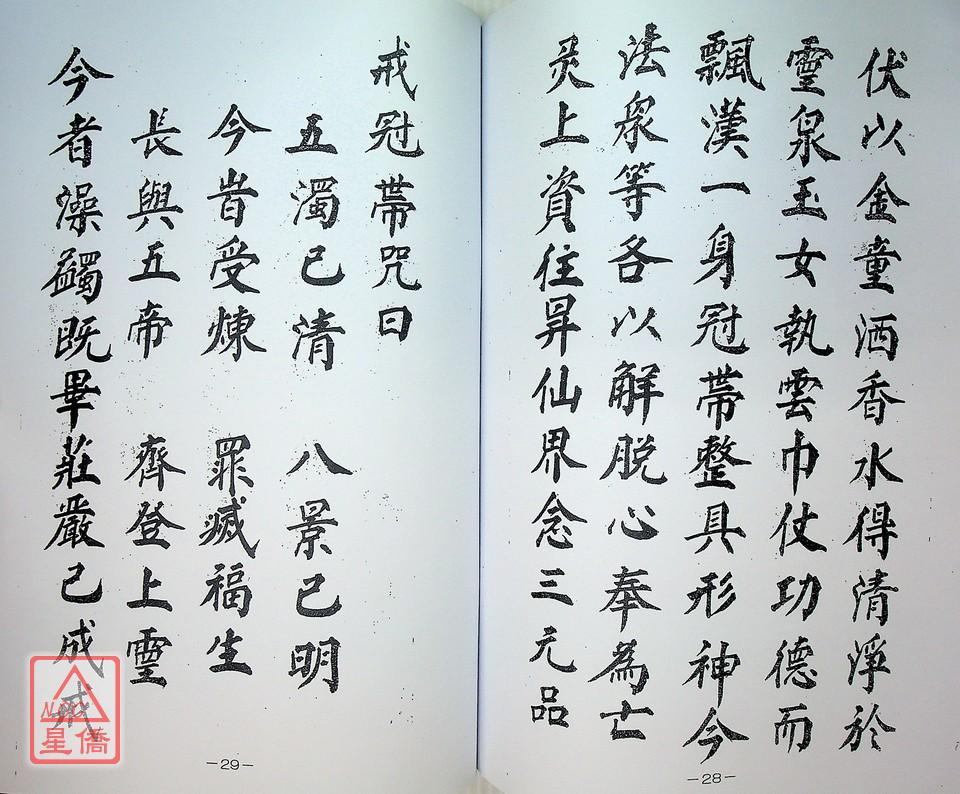 伏以金童洒香水得清淨於
靈泉玉女執雲巾仗功德而
飄漢一身冠帶整具形神今
法眾等各以解脫心奉為亡
灵上資徃昇仙界念三元品
-28-
戒冠帶咒曰
五濁已清 八景已明
今旹受煉 罪滅福生
長與五帝 齊登上靈
今者澡蠲既畢莊嚴已成戒
-29-
NCC
星僑